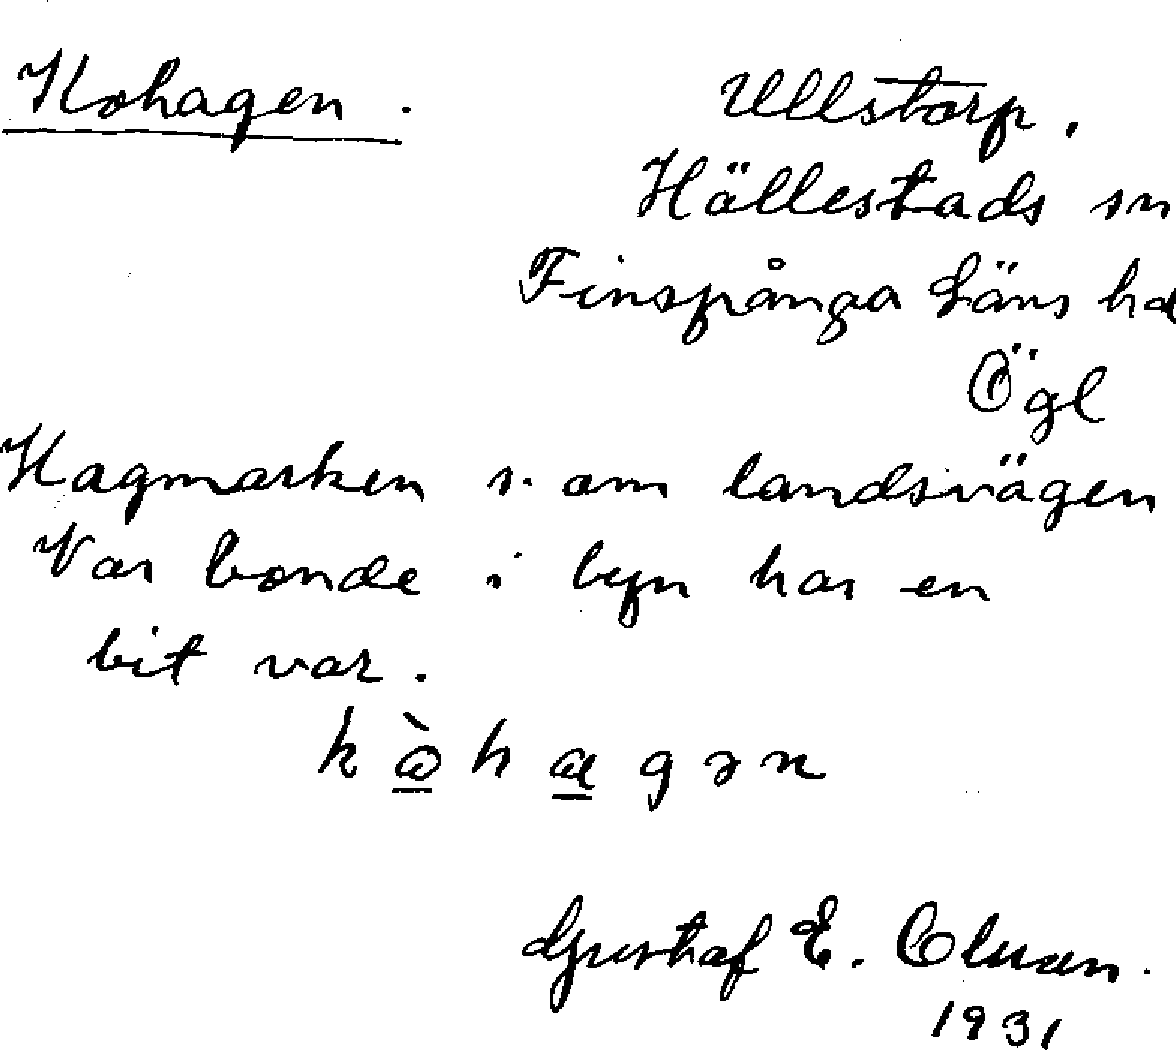 Kohagen. Ullstorp.
Hällestads sn
Finspånga Läns hd
Ögl
Hagmarken s. om landsvägen
Var bonde i byn har en
bit var.
kὼhagən
Gustaf E. Olsson.
1931